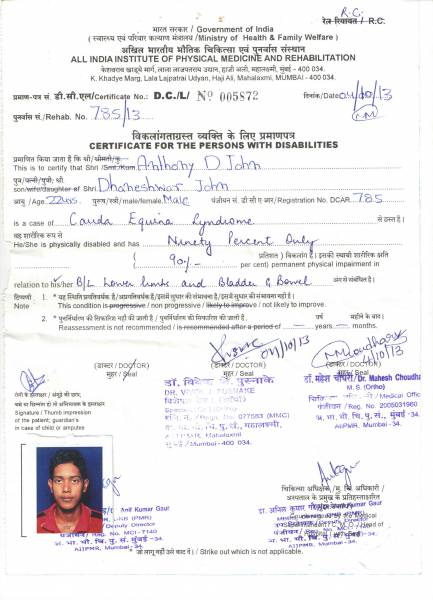 R.C.
रेल रियायत / R.C.
भारत सरकार / Government of India
( स्वास्थ्य एवं परिवार कल्याण मंत्रालय / Ministry of Health & Family Welfare )
अखिल भारतीय भौतिक चिकित्सा एवं पुनर्वास संस्थान
ALL INDIA INSTITUTE OF PHYSICAL MEDICINE AND REHABILITATION
केशवराव खाड्ये मार्ग, लाला लाजपतराय उद्यान, हाजी अली, महालक्ष्मी, मुंबई - 400 034.
K. Khadye Marg, Lala Lajpatrai Udyan, Haji Ali, Mahalaxmi, MUMBAI - 400 034.
प्रमाण-पत्र सं. डी.सी.एल/Certificate No.: D.C./L/ Nº 005872 दिनांक/Date 04/10/13
पुनर्वास सं./Rehab. No. 785/13
विकलांगताग्रस्त व्यक्ति के लिए प्रमाणपत्र
CERTIFICATE FOR THE PERSONS WITH DISABILITIES
प्रमाणित किया जाता है कि श्री/श्रीमती/कु.
This is to certify that Shri/Smt./Kum. Anthony D John
पुत्र/पत्नी/पुत्री श्री
son/wife/daughter of Shri Dhaneshwar John
आयु / Age. 22yrs पुरुष/स्त्री/male/female. Male पंजीयन सं. डी सी ए आर/Registration No. DCAR. 785
is a case of Cauda Equina Syndrome से ग्रस्त है।
वह शारीरिक रूप से
He/She is physically disabled and has Ninety Percent Only
( 90% प्रतिशत ) विकलांग है। इसकी स्थायी शारीरिक क्षति
per cent) permanent physical impairment in
relation to his/her B/L Lower limbs and Bladder & Bowel अंग से संबंधित है।
टिप्पणी 1. * यह स्थिति प्रगतिवर्धक है/अप्रगतिवर्धक है/इसमें सुधार की संभावना है/इसमें सुधार की संभावना नहीं है।
Note This condition is progressive / non progressive / likely to improve / not likely to improve.
2. * पुनर्निर्धारण की सिफारिश नहीं की जाती है / पुनर्निर्धारण की सिफारिश की जाती है, वर्ष महीने के बाद।
Reassessment is not recommended / is recommended after a period of – years – months.
04/10/13
4/10/13
(डाक्टर / DOCTOR) (डाक्टर / DOCTOR)
मुहर / Seal मुहर / Seal
डॉ. महेश चौधरी/ Dr. Mahesh Choudha
M. S. (Ortho)
/ Medical Offic
पंजीयन / Reg. No. 2005031960
अ. भा. भौ. चि. पु. सं., मुंबई -34.
AIIPMR, Mumbai-34.
/ Reg. No. 077583 (MMC)
AIIPMR, Mahalaxmi
मुंबई / Mumbai - 400 034
रोगी के हस्ताक्षर / अंगूठे की छाप,
Signature / Thumb impression
of the patient; guardian's
in case of child or amputes
चिकित्सा अधीक्षक / मु. चि. अधिकारी /
अस्पताल के प्रमुख के प्रतिहस्ताक्षरित
Anil Kumar Gaur
DNB (PMR)
Deputy Director
पंजीयन / Reg. No. MCI-7140
अ. भा. भौ. चि. पु. सं. मुंबई -34.
AIIPMR, Mumbai-34.
(जो लागू नहीं उसे काट दें) / Strike out which is not applicable.